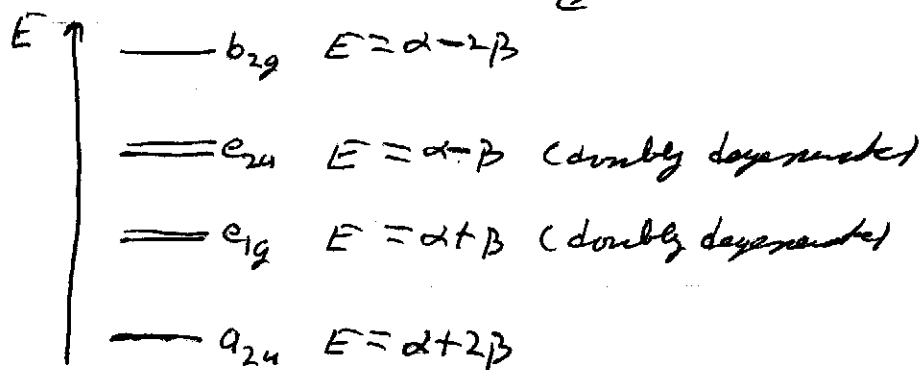 E
b₂g E = α - 2β
e₂u E = α - β (doubly degenerate)
e₁g E = α + β (doubly degenerate)
a₂u E = α + 2β